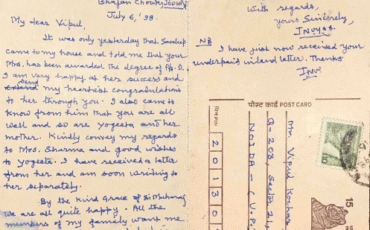 Bhajan Chowki, Jodhpur
July 6, '98.
My dear Vipul,
It was only yesterday that Sandeep
came to my house and told me that your
Mrs. has been awarded the degree of Ph.D.
I am very happy at her success and
send my heartiest congratulations
to her through you. I also came to
know from him that you are all
well and so are Yogeeta and her
mother. Kindly convey my regards
to Mrs. Sharma and good wishes
to Yogeeta. I have received a letter
from her and am soon writing to
her separately.
By the kind grace of
we are all quite happy. All the
members of my family want me
With regards,
yours Sincerely,
NB
I have just now received your
inland letter. Thanks
पोस्ट कार्ड POST CARD
Mr. Vipul
NOIDA - (U.P.)
2 0 1 3 0
15